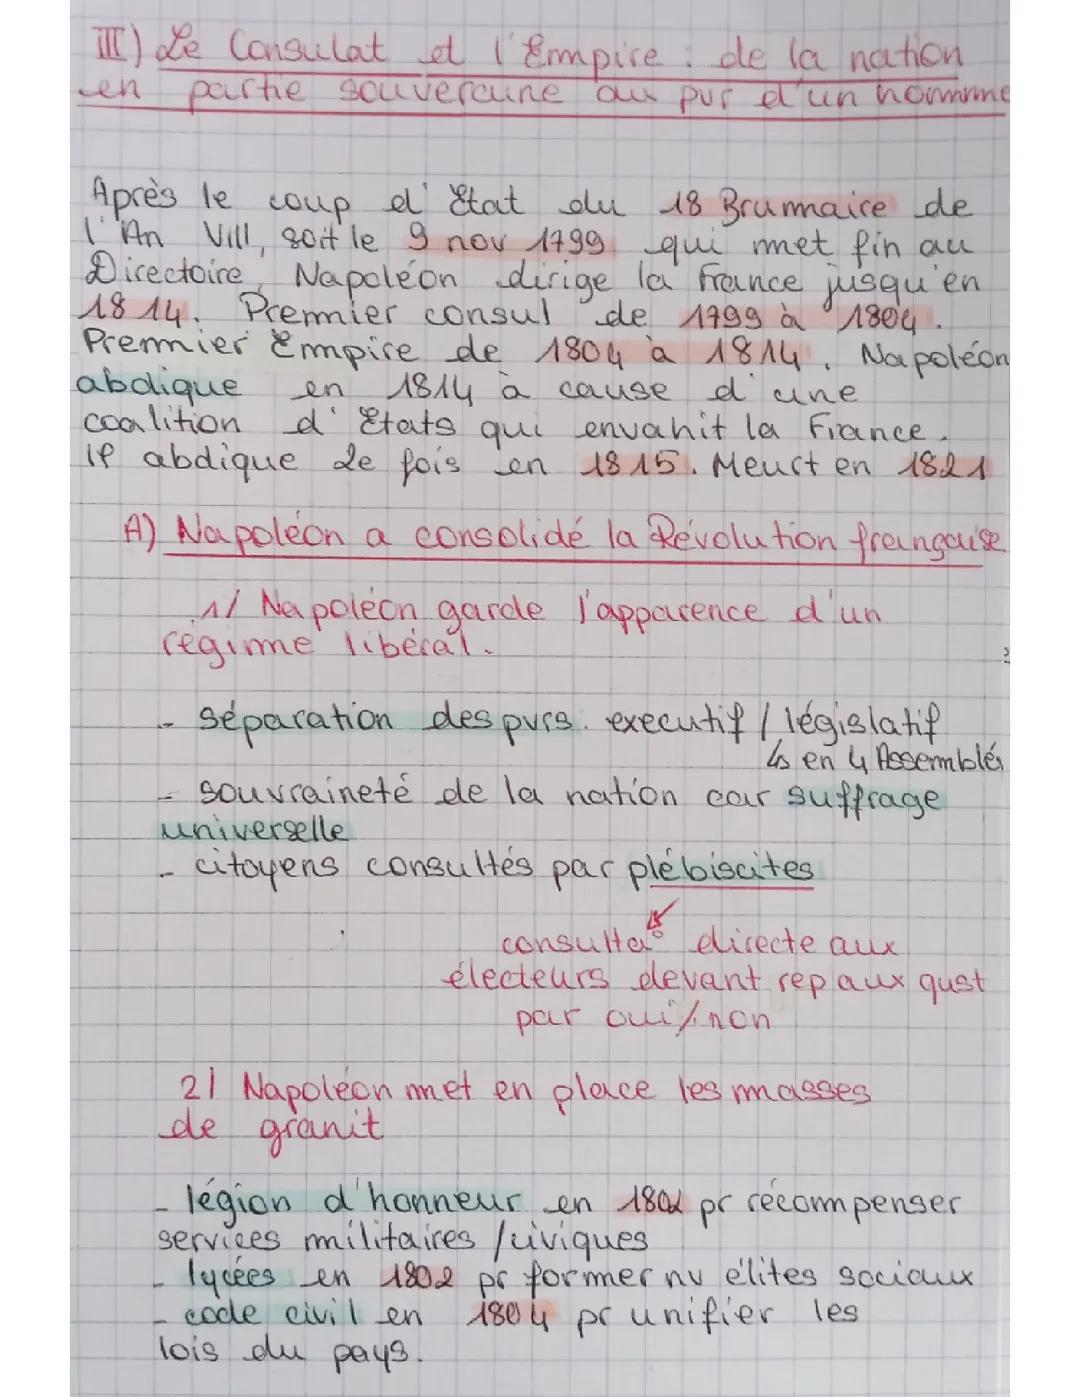 III) Le Consulat et l'Empire : de la nation
en partie souveraine au pvr d'un homme
Après le coup d'État du 18 Brumaire de
l'An VIII, soit le 9 nov 1799 qui met fin au
Directoire, Napoléon dirige la France jusqu'en
1814. Premier consul de 1799 à 1804.
Premier Empire de 1804 à 1814. Napoléon
abdique en 1814 à cause d'une
coalition d'États qui envahit la France.
Il abdique 2e fois en 1815. Meurt en 1821
A) Napoléon a consolidé la Révolution française
1/ Napoléon garde l'apparence d'un
régime libéral.
- séparation des pvrs. executif / législatif
↳ en 4 Assemblés
- souvraineté de la nation car suffrage
universelle
- citoyens consultés par plébiscites
consulta° directe aux
électeurs devant rep aux qust
par oui/non
2/ Napoléon met en place les masses
de granit
- légion d'honneur en 1802 pr récompenser
services militaires / civiques
- lycées en 1802 pr former nv élites sociaux
- code civil en 1804 pr unifier les
lois du pays.